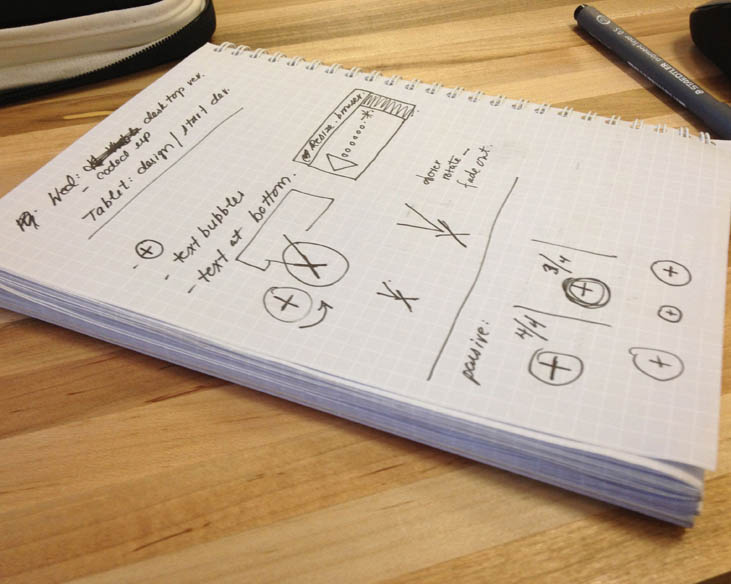 Wed: desktop ver.
- coded up
Tablet: design/start dev.
- text bubbles
- text at bottom.
Resize browser
rotate -
fade out.
passive:
4/4
3/4
STAEDTLER pigment liner 0.5